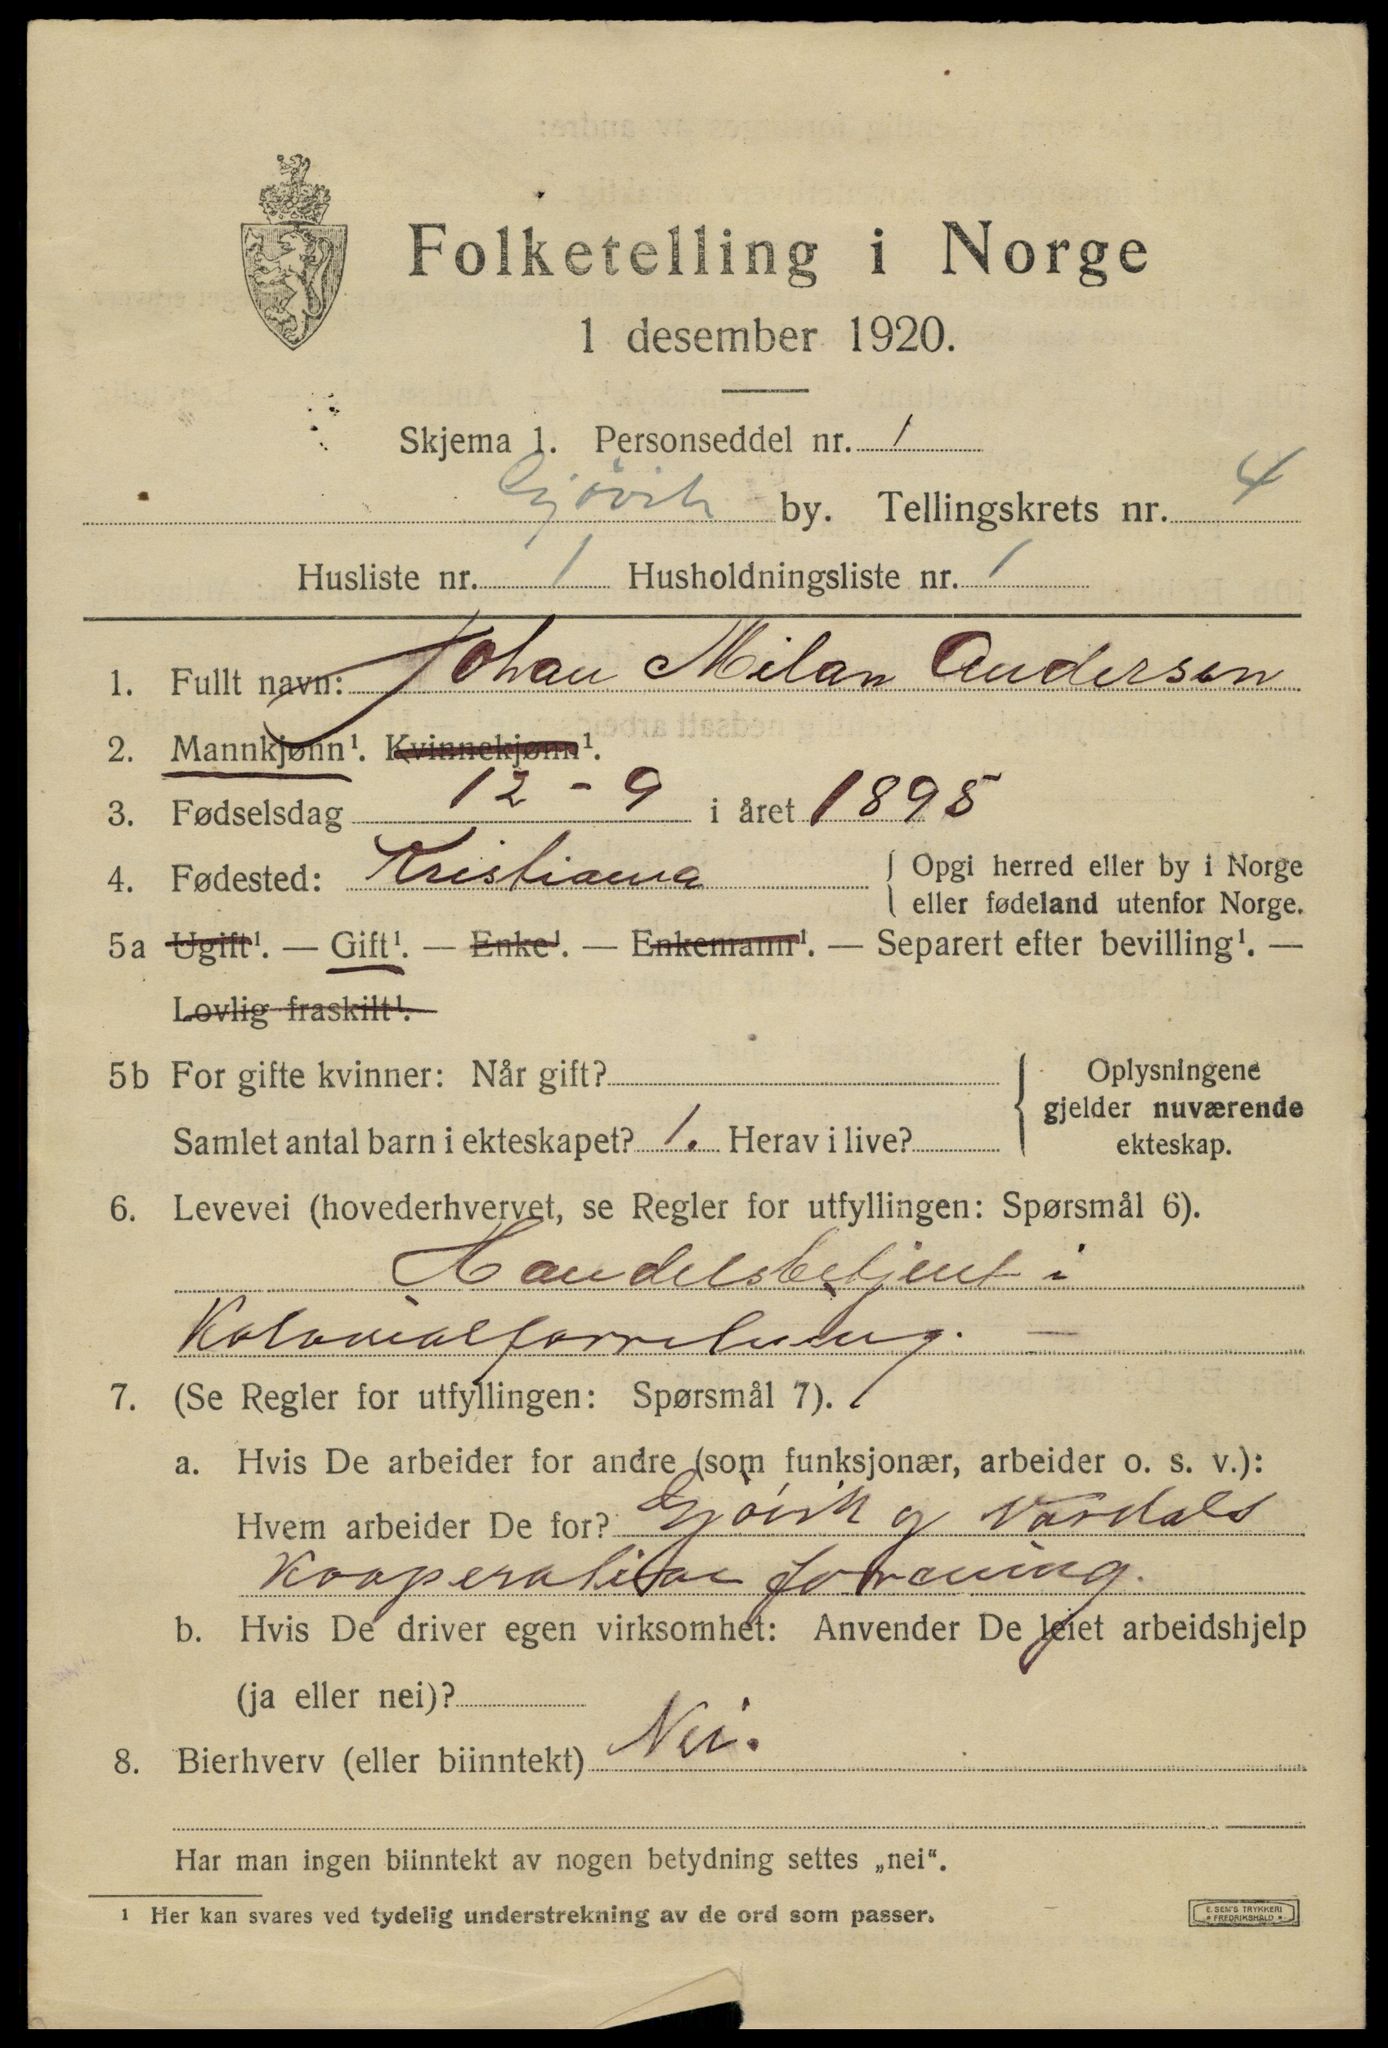 Folketelling i Norge
1 desember 1920.
Skjema 1. Personseddel nr. 1
Gjøvik by. Tellingskrets nr. 4
Husliste nr. 1 Husholdningsliste nr. 1
1. Fullt navn: Johan Milan Andersen
2. Mannkjønn¹. Kvinnekjønn¹.
3. Fødselsdag 12 - 9 i året 1895
4. Fødested: Kristiania { Opgi herred eller by i Norge
eller fødeland utenfor Norge.
5a Ugift¹. — Gift¹. — Enke¹. — Enkemann¹. — Separert efter bevilling¹. —
Lovlig fraskilt¹.
5b For gifte kvinner: Når gift? { Oplysningene
gjelder nuværende
Samlet antal barn i ekteskapet? 1. Herav i live? ekteskap.
6. Levevei (hovederhvervet, se Regler for utfyllingen: Spørsmål 6).
Handelsbetjent i
Kolonialforretning. —
7. (Se Regler for utfyllingen: Spørsmål 7).
a. Hvis De arbeider for andre (som funksjonær, arbeider o. s. v.):
Hvem arbeider De for? Gjövik og Vardals
Kooperative forening.
b. Hvis De driver egen virksomhet: Anvender De leiet arbeidshjelp
(ja eller nei)?
8. Bierhverv (eller biinntekt) Nei.
Har man ingen biinntekt av nogen betydning settes „nei“.
¹ Her kan svares ved tydelig understrekning av de ord som passer.
E. SEM'S TRYKKERI
FREDRIKSHALD